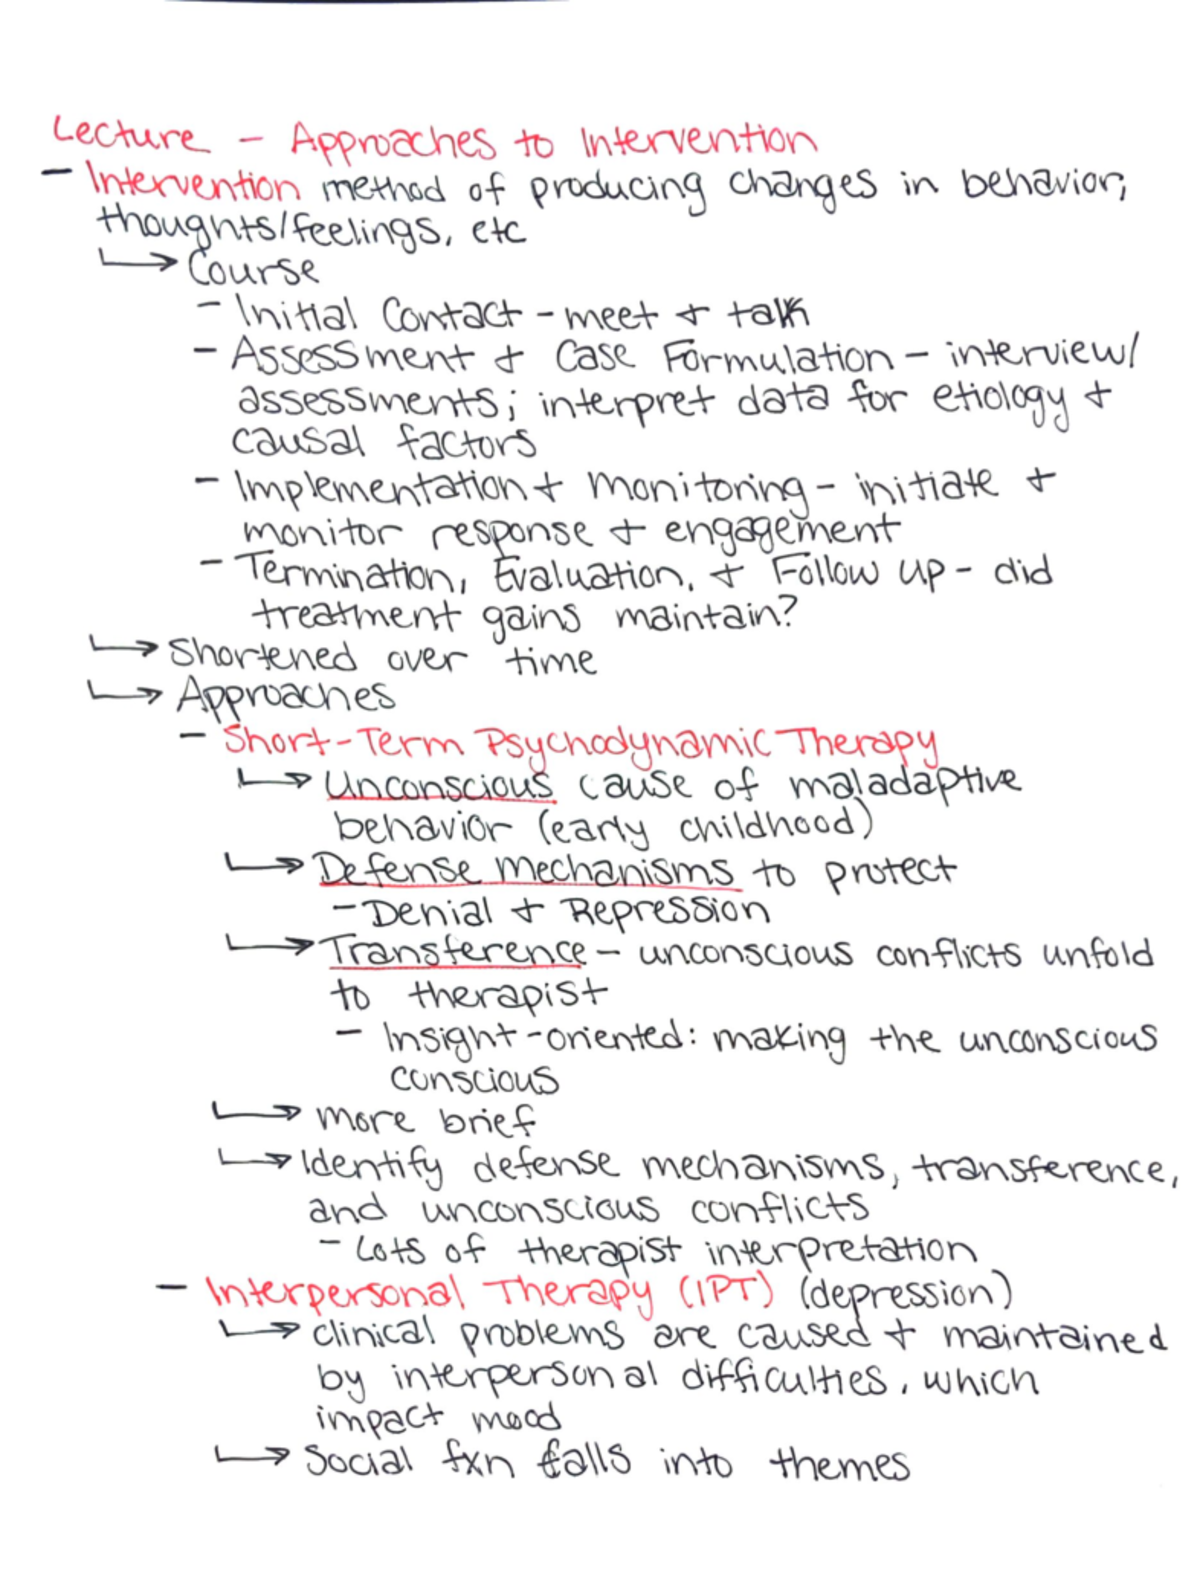 Lecture - Approaches to Intervention
- Intervention method of producing changes in behavior,
thoughts/feelings, etc
↳ Course
- Initial Contact - meet + talk
- Assessment + Case Formulation - interview/
assessments; interpret data for etiology +
causal factors
- Implementation + Monitoring - initiate +
monitor response + engagement
- Termination, Evaluation, + Follow up - did
treatment gains maintain?
↳ Shortened over time
↳ Approaches
- Short-Term Psychodynamic Therapy
↳ Unconscious cause of maladaptive
behavior (early childhood)
↳ Defense Mechanisms to protect
- Denial + Repression
↳ Transference - unconscious conflicts unfold
to therapist
- Insight-oriented: making the unconscious
conscious
↳ more brief
↳ Identify defense mechanisms, transference,
and unconscious conflicts
- Lots of therapist interpretation
- Interpersonal Therapy (IPT) (depression)
↳ clinical problems are caused + maintained
by interpersonal difficulties, which
impact mood
↳ Social fxn falls into themes